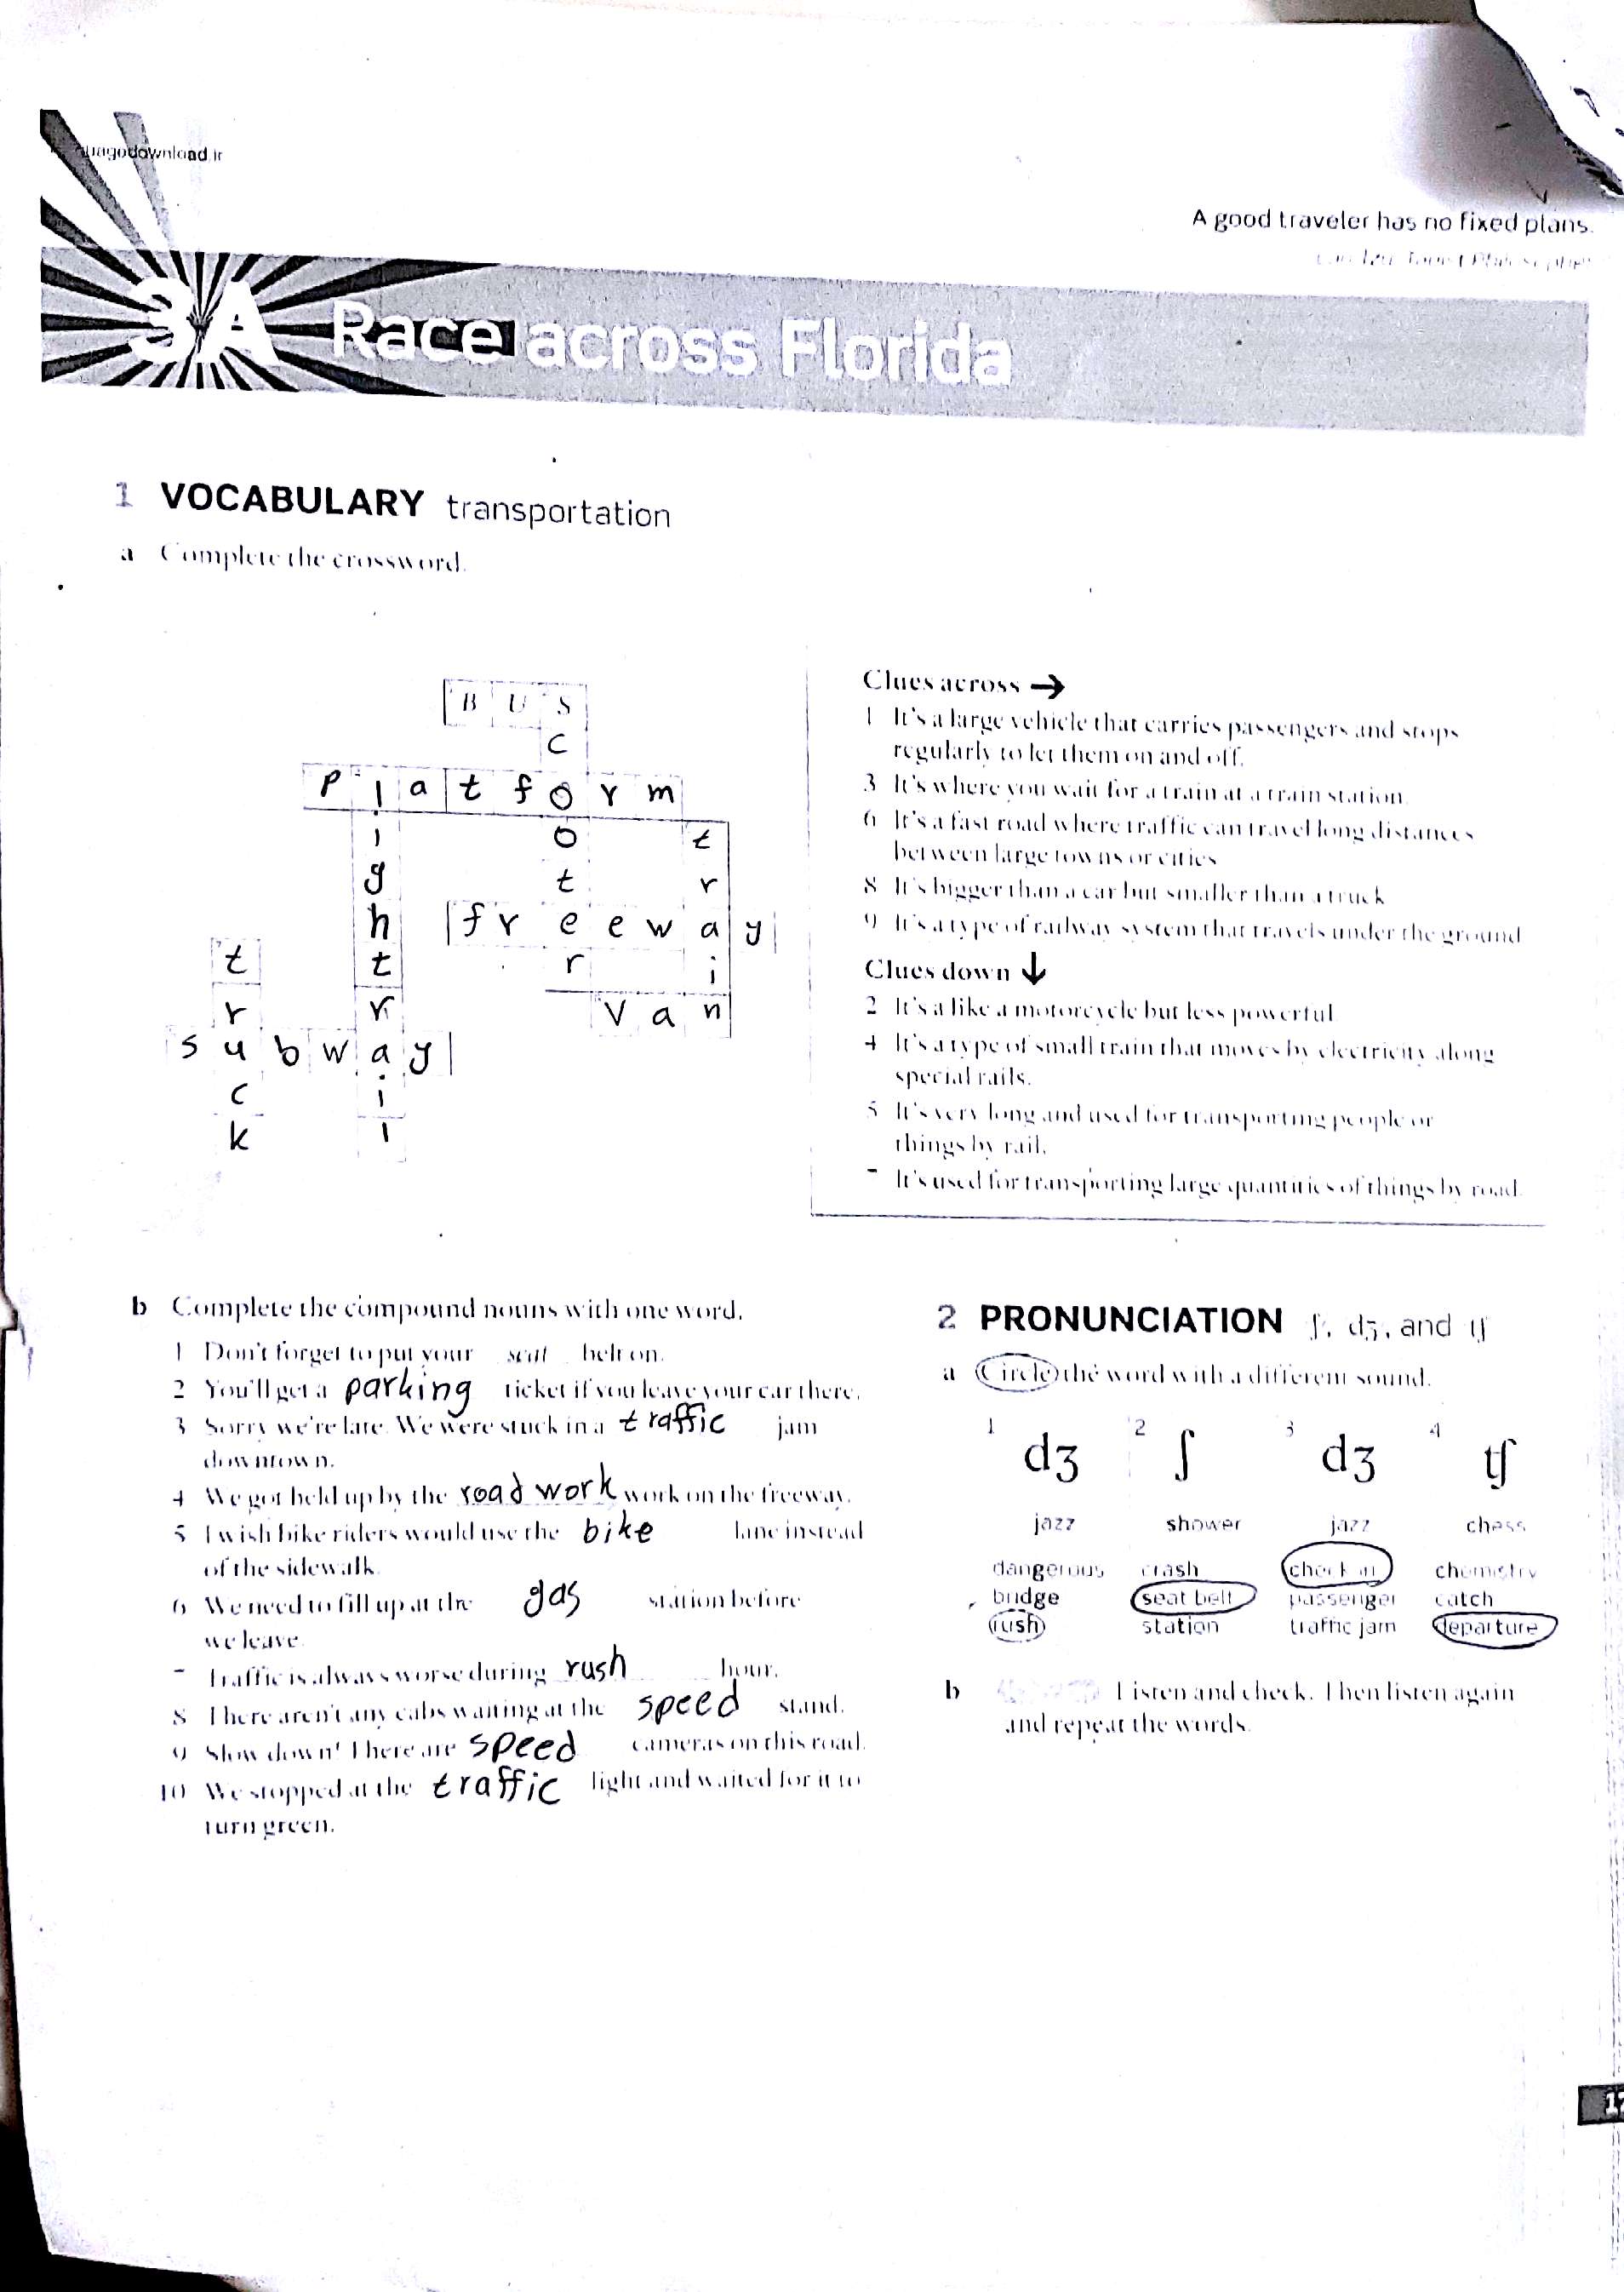 A good traveler has no fixed plans.
3A Race across Florida
1 VOCABULARY transportation
a Complete the crossword.
B U S
c
p l a t f o r m
i o t
g t r
h f r e e w a y
t t r i
r r v a n
s u b w a y
c i
k l
Clues across →
1 It's a large vehicle that carries passengers and stops
regularly to let them on and off.
3 It's where you wait for a train at a train station.
6 It's a fast road where traffic can travel long distances
between large towns or cities
8 It's bigger than a car but smaller than a truck
9 It's a type of railway system that travels under the ground
Clues down ↓
2 It's a like a motorcycle but less powerful
4 It's a type of small train that moves by electricity along
special rails.
5 It's very long and used for transporting people or
things by rail.
7 It's used for transporting large quantities of things by road.
b Complete the compound nouns with one word.
1 Don't forget to put your seat belt on.
2 You'll get a parking ticket if you leave your car there.
3 Sorry we're late. We were stuck in a traffic jam
downtown.
4 We got held up by the road work work on the freeway.
5 I wish bike riders would use the bike lane instead
of the sidewalk.
6 We need to fill up at the gas station before
we leave.
7 Traffic is always worse during rush hour.
8 There aren't any cabs waiting at the speed stand.
9 Slow down! There are speed cameras on this road.
10 We stopped at the traffic light and waited for it to
turn green.
2 PRONUNCIATION ʃ, dʒ, and tʃ
a Circle the word with a different sound.
1 dʒ 2 ʃ 3 dʒ 4 tʃ
jazz shower jazz chess
dangerous crash check in chemistry
bridge seat belt passenger catch
rush station traffic jam departure
b Listen and check. Then listen again
and repeat the words.